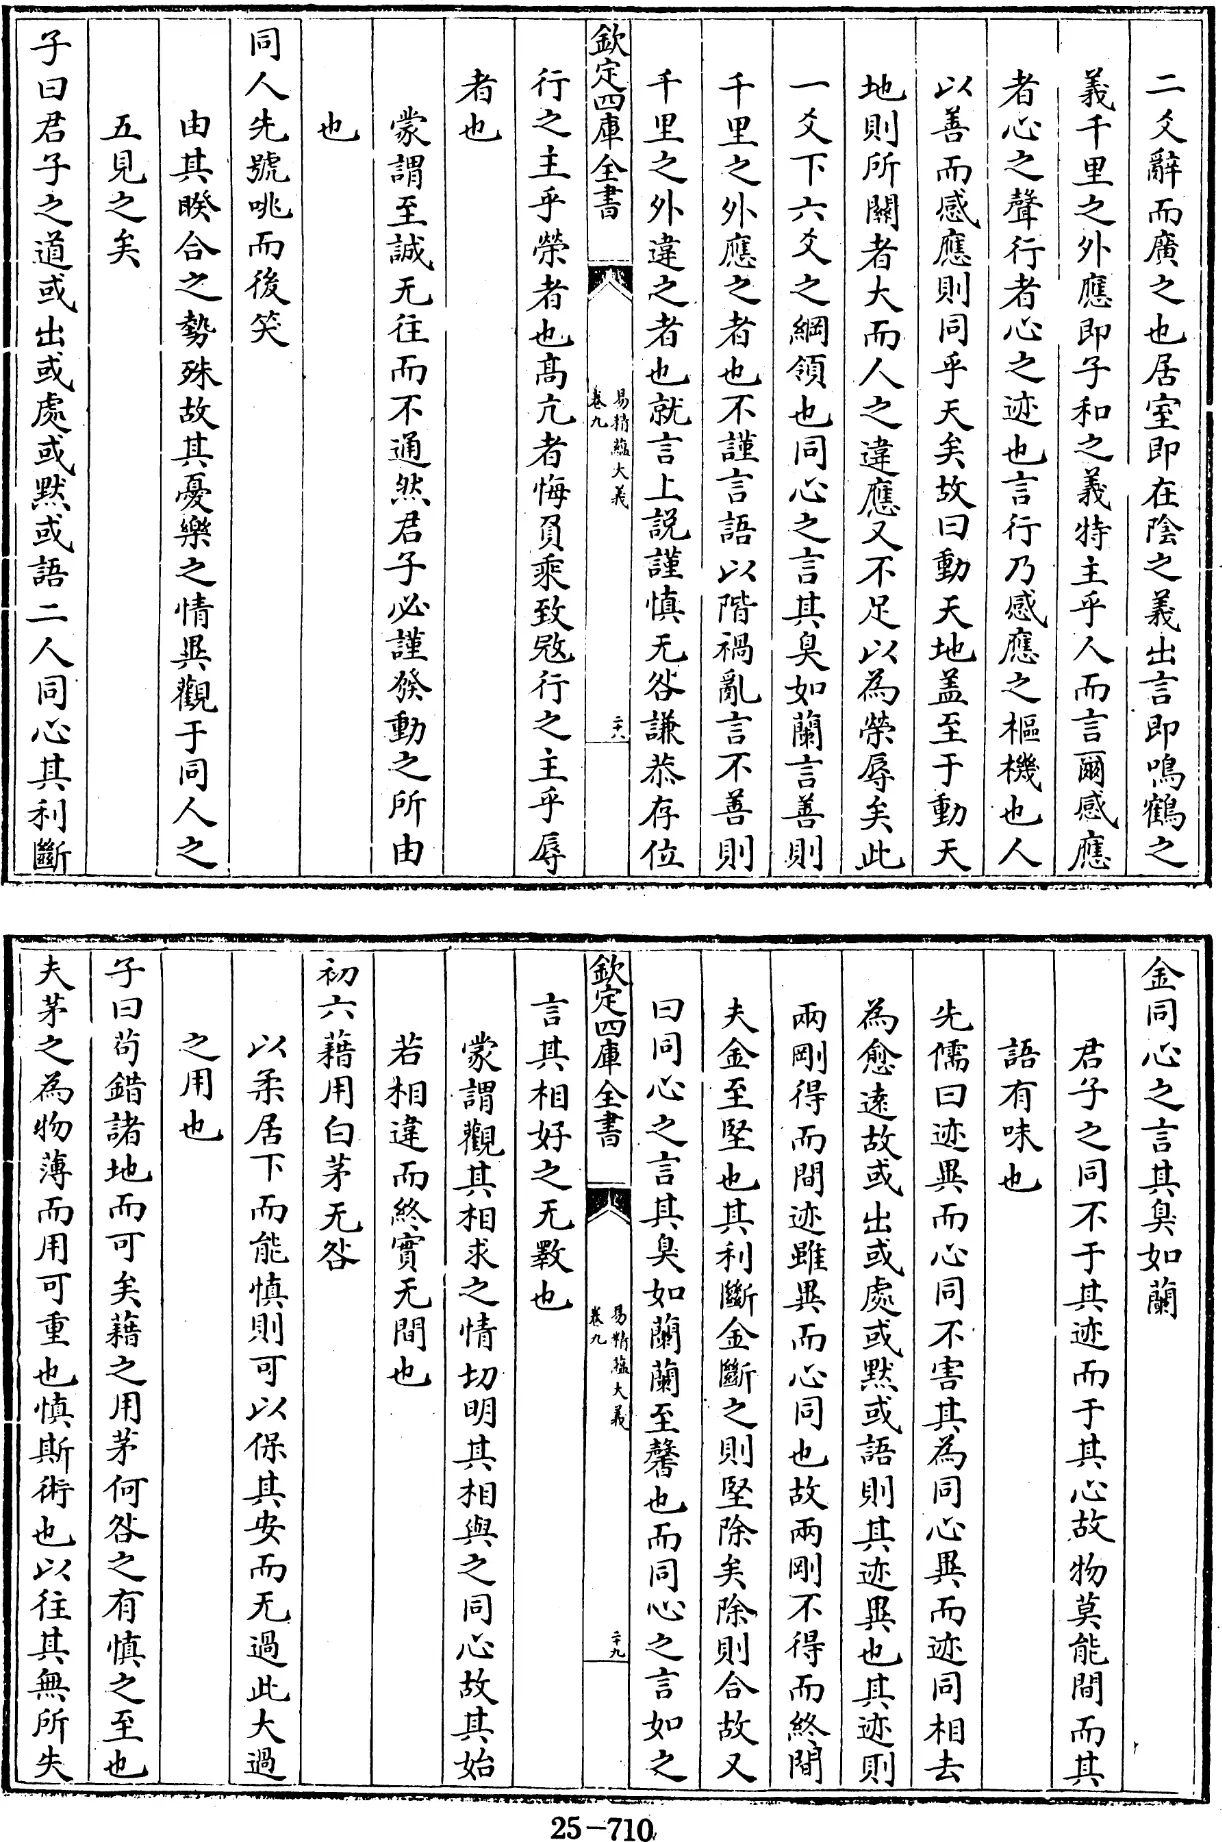 二爻辭而廣之也居室即在陰之義出言即鳴鶴之
義千里之外應即子和之義特主乎人而言爾感應
者心之聲行者心之迹也言行乃感應之樞機也人
以善而感應則同乎天矣故曰動天地盖至于動天
地則所關者大而人之違應又不足以為榮辱矣此
一爻下六爻之綱領也同心之言其臭如蘭言善則
千里之外應之者也不謹言語以階禍亂言不善則
千里之外違之者也就言上説謹慎无咎謙恭存位
欽定四庫全書
易精蘊大義
卷九
二十八
行之主乎榮者也髙亢者悔負乘致㓂行之主乎辱
者也
蒙謂至誠无往而不通然君子必謹發動之所由
也
同人先號咷而後笑
由其睽合之勢殊故其憂樂之情異觀于同人之
五見之矣
子曰君子之道或出或處或黙或語二人同心其利斷
金同心之言其臭如蘭
君子之同不于其迹而于其心故物莫能間而其
語有味也
先儒曰迹異而心同不害其為同心異而迹同相去
為愈遠故或出或處或黙或語則其迹異也其迹則
兩剛得而間迹雖異而心同也故兩剛不得而終間
夫金至堅也其利斷金斷之則堅除矣除則合故又
曰同心之言其臭如蘭蘭至馨也而同心之言如之
欽定四庫全書
易精蘊大義
卷九
二十九
言其相好之无斁也
蒙謂觀其相求之情切明其相與之同心故其始
若相違而終實无間也
初六藉用白茅无咎
以柔居下而能慎則可以保其安而无過此大過
之用也
子曰苟錯諸地而可矣藉之用茅何咎之有慎之至也
夫茅之為物薄而用可重也慎斯術也以往其無所失
25-710